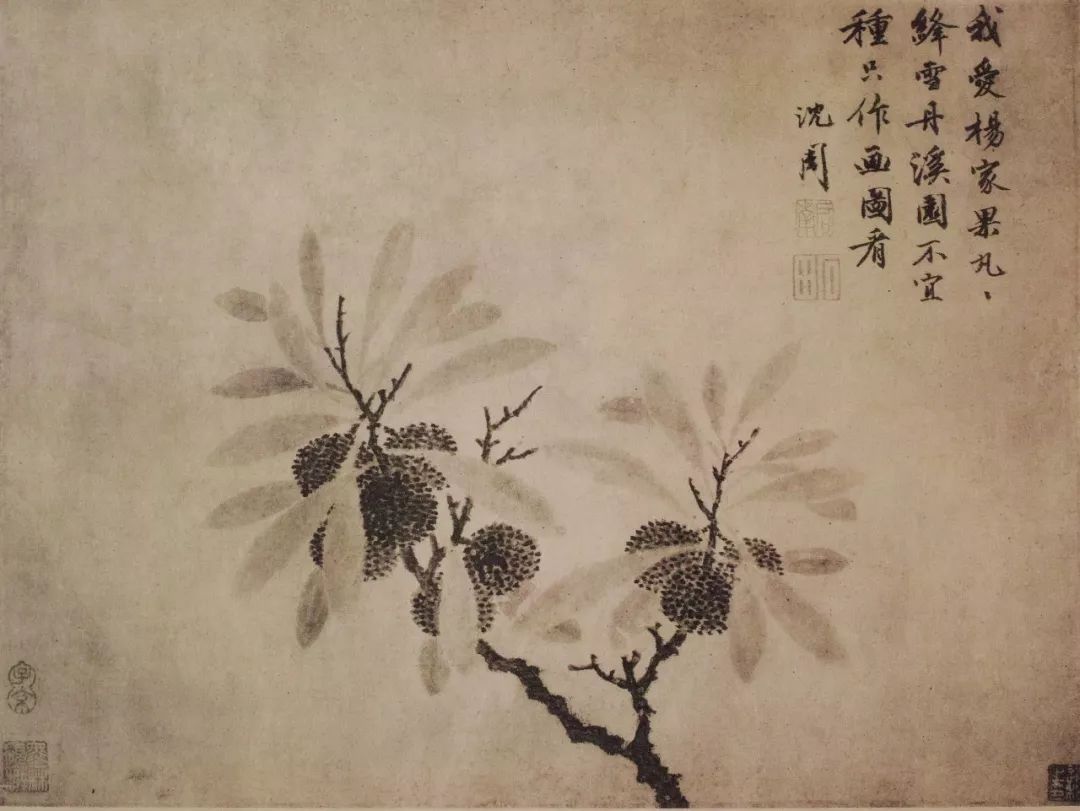 我愛楊家果丸〻
絳雪丹溪園不宜
種只作画圖看
沈周